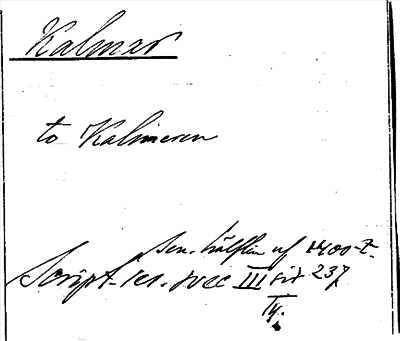 Kalmar
to Kalmeren
sen. hälften af 1400-t.
Script. rer. svec III sid 237
Ty.